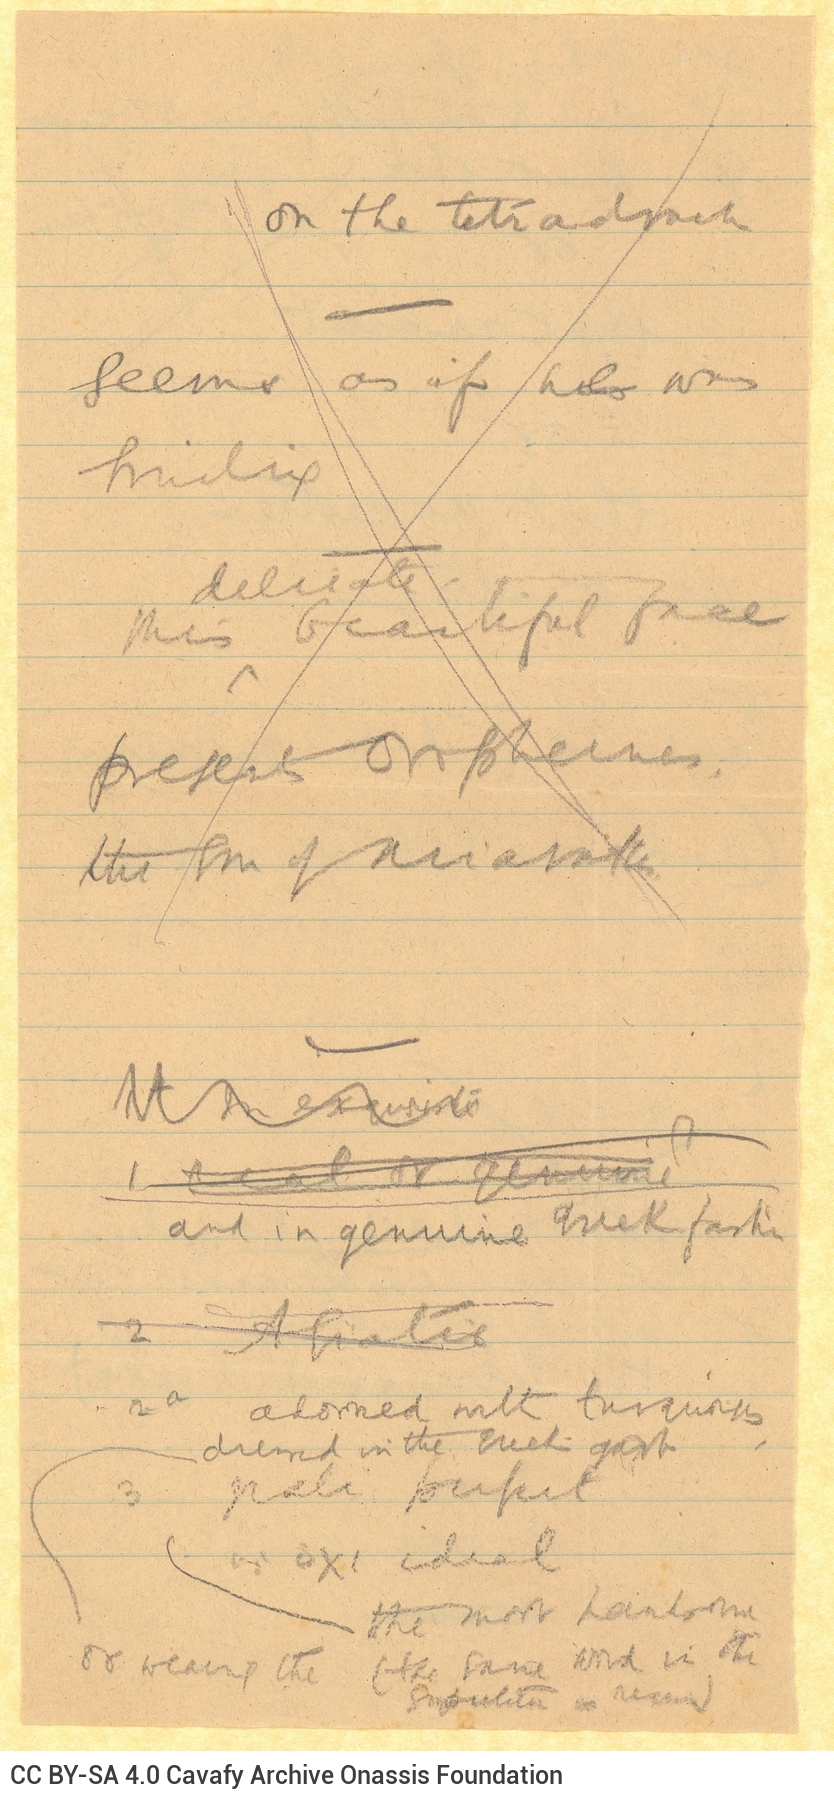 on the tetradrach
seems as if was
smiling
delicate
this beautiful face
presents Orophernes,
the son of Ariarathes.
It exquisite
1 real or genuine
and in genuine Greek fashion
2 Asiatic
2a adorned with turquoises,
dressed in the Greek garb
3 perfect
or όχι ideal
the most handsome
or wearing the (the same word in the
superlative is
CC BY-SA 4.0 Cavafy Archive Onassis Foundation